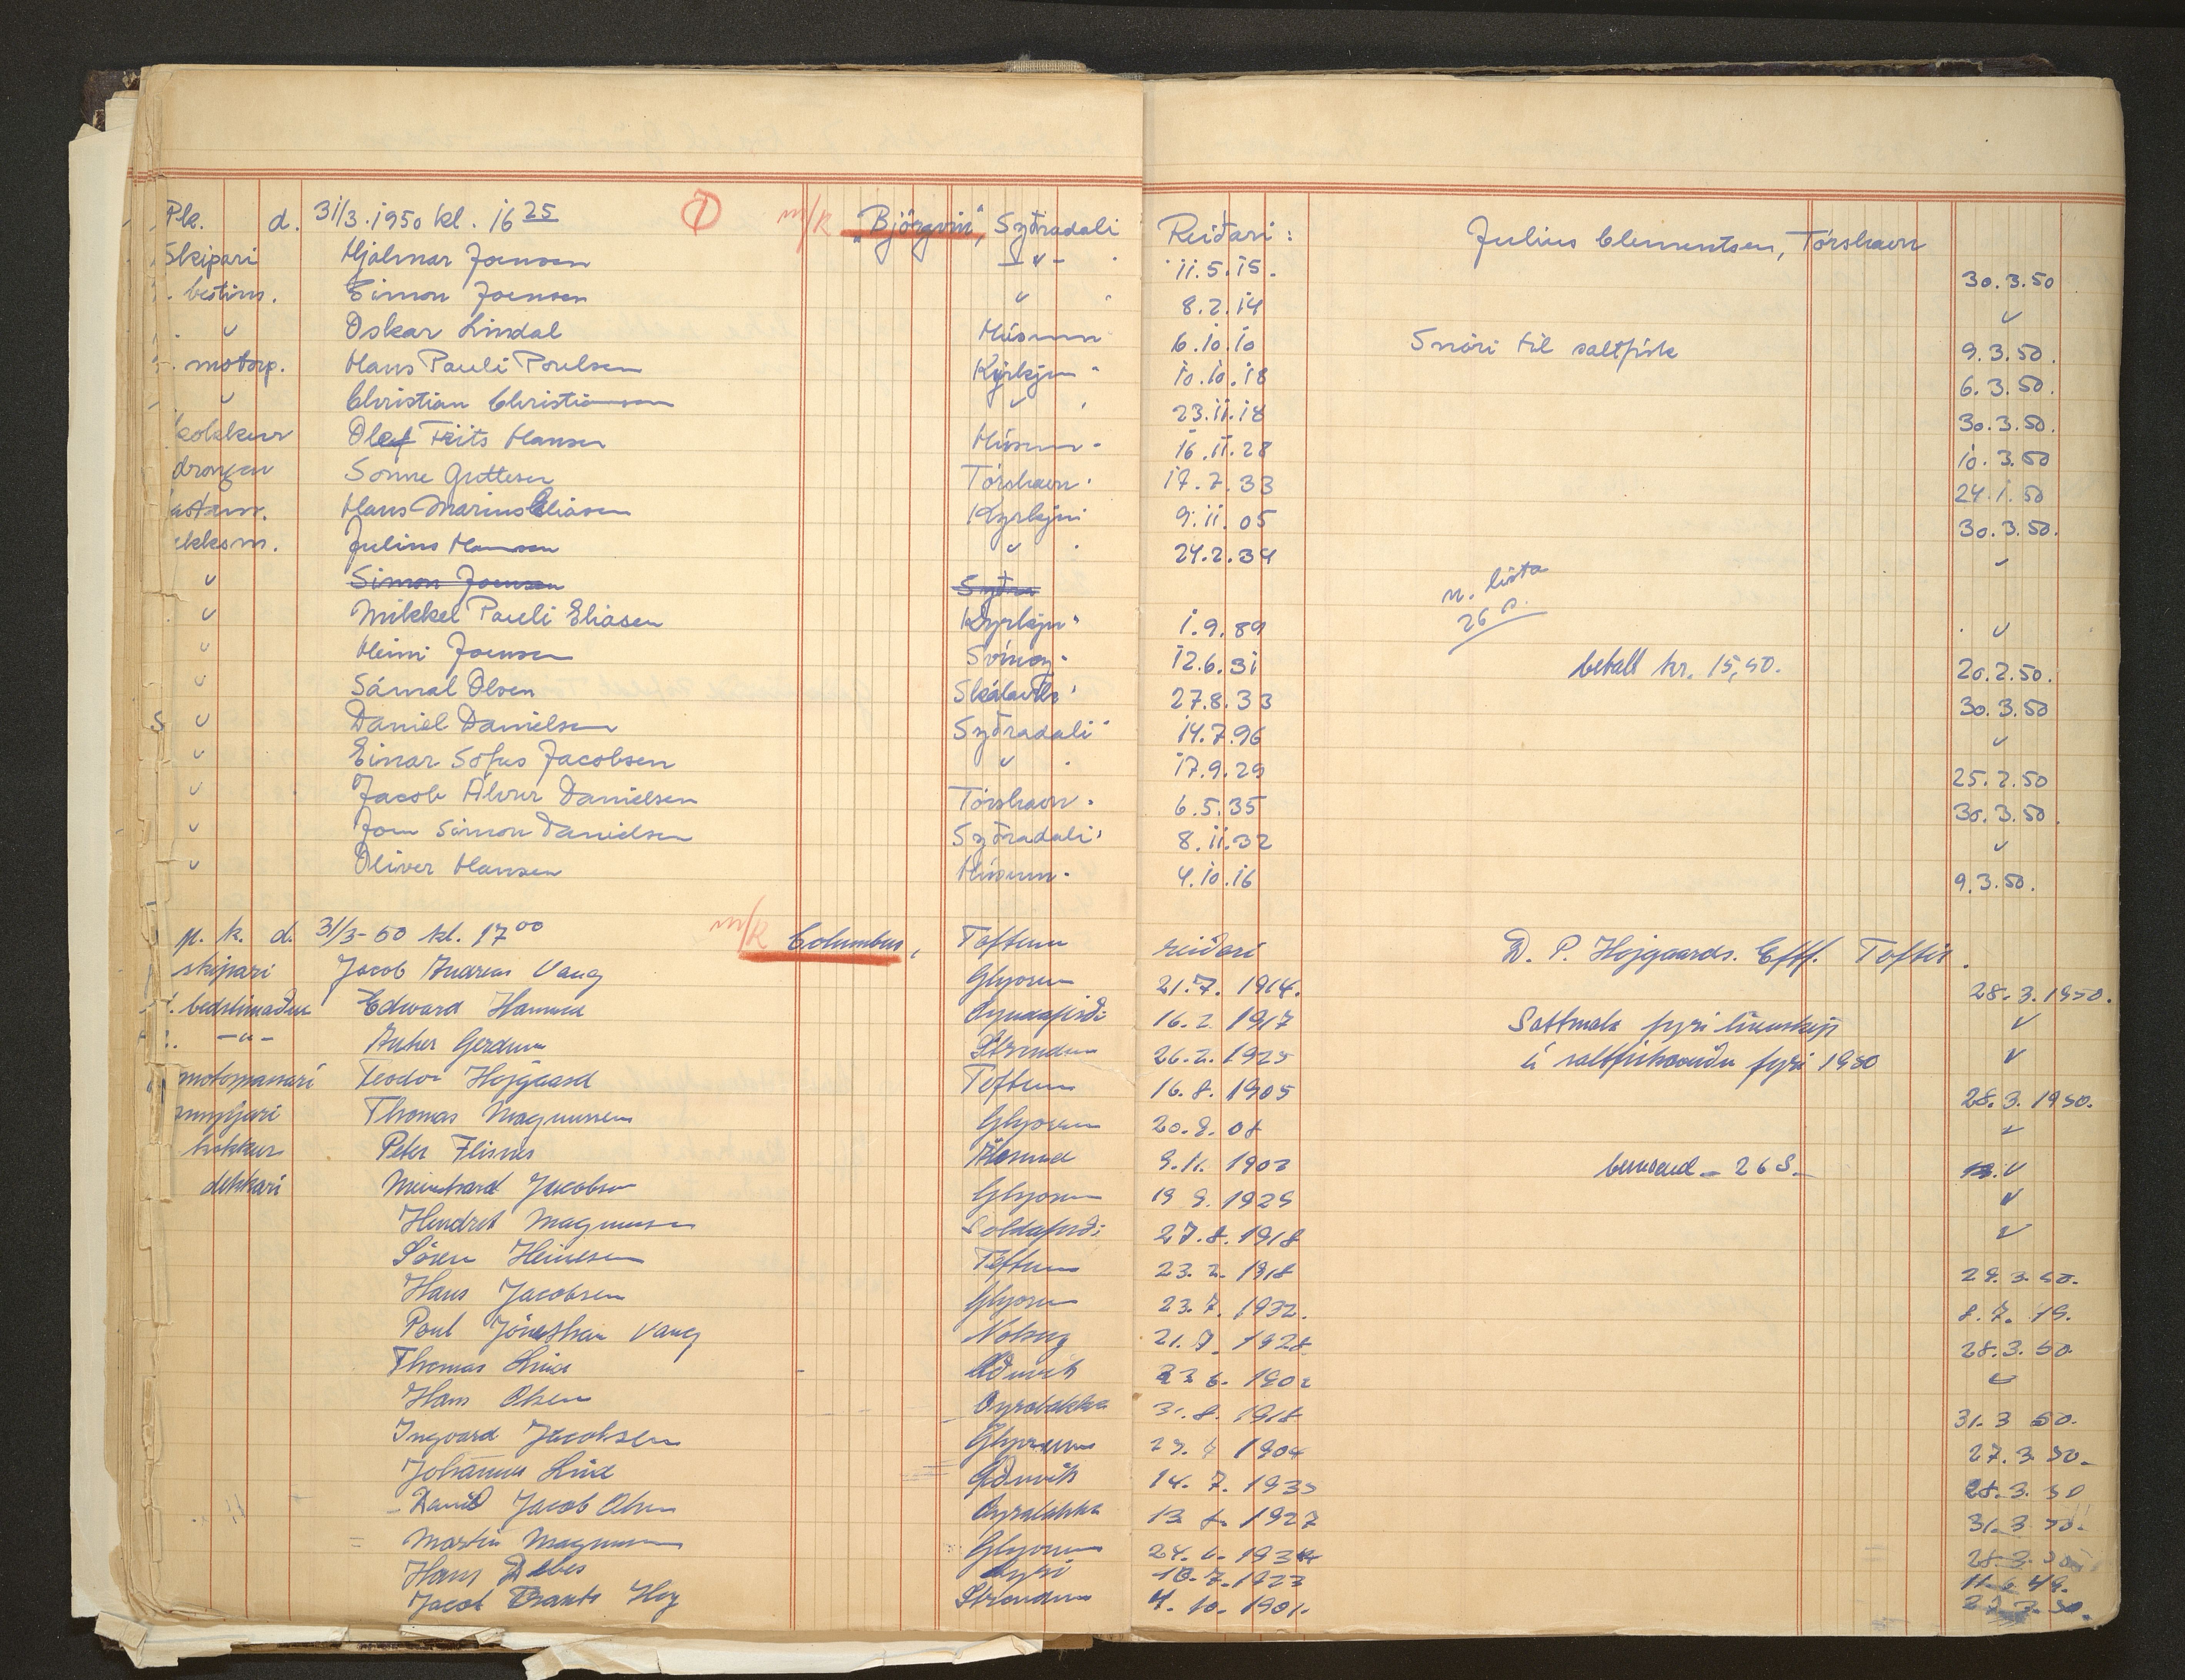 P.k. d. 31/3.1950 kl. 16 25 ① m/k „Björgvin", Syðradali Reiðari: Julius Clementsen, Tórshavn
Skipari Hjalmar Joensen –"– 11.5.15. 30.3.50
1. bestim. Eimon Joensen " 8.2.14 "
" Oskar Lindal Húsum 6.10.10 Snøri til saltfisk 9.3.50.
motorp. Hans Pauli Poulsen Kyrkju " 10.10.18 6.3.50.
" Christian Christiansen " 23.11.18 30.3.50.
kokkur Olaf Frits Hansen Húsum 16.11.28 10.3.50
drongur Sonne Guttesen Tórshavn 17.7.33 24.1.50
Hans Marius Eliasen Kyrkju 9.11.05 30.3.50.
Julius Hansen " 24.2.34 "
" Simon Joensen Syðra n. lista 26 s.
" Mikkel Pauli Eliasen Kyrkju " 1.9.89 "
" Heini Joensen Svínoy 12.6.31 betalt kr. 15,50. 20.2.50.
" Sámal Olsen Skálavík 27.8.33 30.3.50
" Daniel Danielsen Syðradali 14.7.96 "
" Einar Sofus Jacobsen " 17.9.29 25.2.50
" Jacob Álvur Danielsen Tórshavn 6.5.35 30.3.50.
" Joen Símon Danielsen Syðradali 8.11.32 "
" Oliver Hansen Húsum 4.10.16 9.3.50.
p. k. d. 31/3-50 kl. 17 00 m/k Columbus, Toftum reiðari D. P. Hojgaards. Eftf. Toftir.
skipari Jacob Andreas Vang Glyvrum 21.7. 1914. 28.3.1950.
1. bedstimaður Edward Hammer 16.2 1917 Sáttmála fyri línuskip "
2. –"– Anker Gerdum Strendur 26.2.1925 á saltfiskaveiðu fyri 1950 "
motorpassari Teodor Hojgaard Toftum 16.8.1905 28.3.1950.
Thomas Magnussen Glyvrum 20.8.08 "
kokkur Peter Flisnes Ålesund 9.11.1902 26 S. "
dekkari Meinhard Jacobsen Glyvrum 19 9.1925 "
Hendrik Magnussen Soldafirði 27.8.1918 "
Sören Heinesen Toftum 23.2.1918 29.3.50.
Hans Jacobsen Glyvrum 23.7.1932. 8.7.49.
Poul Jónathan Vang Nolsoy 21.7.1928 28.3.50
Thomas Lind Æðuvík 23 6. 1902 "
Hans Olsen Oyrabakka 31.8.1918 31.3 50.
Ingvard Jacobsen Glyvrum 29.4 1904 27.3 50.
Johannus Lind Æðuvík 14.7.1935 28.3.50
David Jacob Olsen Oyrabakka 13 8. 1927 31.3 50.
Martin Magnussen Glyvrum 24.6.1934 28.3.50
Hans Debes 10.7.1923 11.6 49.
Jacob Frants Hoy Strendur 4.10.1901.